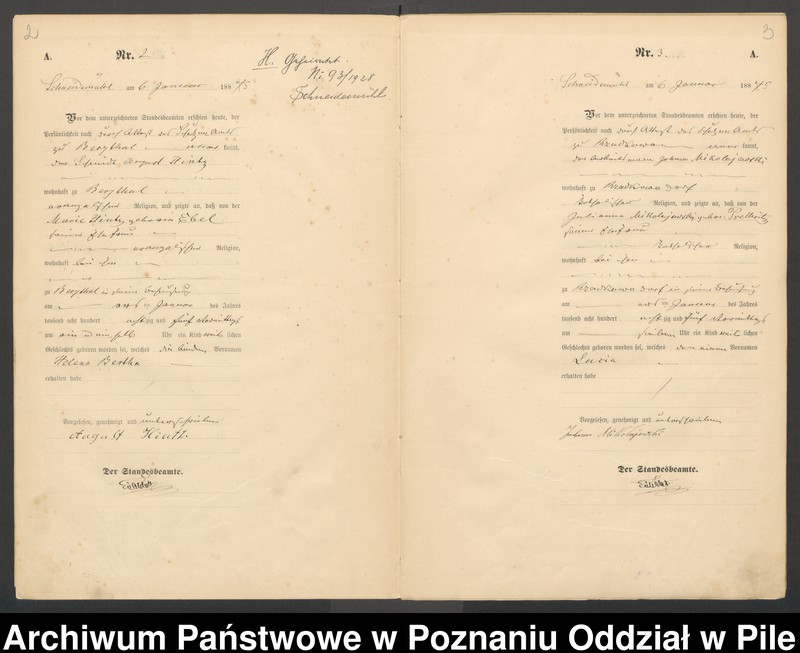 2
A.
Nr. 2
H. Geheiratet
Nr. 93/1928
Schneidemühl
Schneidemühl am 6 Januar 1885
Vor dem unterzeichneten Standesbeamten erschien heute, der
Persönlichkeit nach durch Attest des Schulzen Amts
zu Bergthal kannt,
der August Hintz
wohnhaft zu Bergthal
evangelischer Religion, und zeigte an, daß von der
Marie Hintz geborenen Ebel
seiner Ehefrau
evangelischer Religion,
wohnhaft bei ihm
zu Bergthal in seiner Behausung
am Januar des Jahres
tausend acht hundert achtzig und fünf Vormittags
um ein Uhr ein Kind weiblichen
Geschlechts geboren worden sei, welches die beiden Vornamen
Helene Bertha
erhalten habe
Vorgelesen, genehmigt und unterschrieben
August Hintz
Der Standesbeamte.
3
Nr. 3.
A.
Schneidemühl am 6 Januar 1885
Vor dem unterzeichneten Standesbeamten erschien heute, der
Persönlichkeit nach durch Attest des Schulzen Amts
zu kannt,
der Arbeitsmann Johann Mikolajewski
wohnhaft zu Dorf
katholischer Religion, und zeigte an, daß von der
Julianna Mikolajewski geborenen
seiner Ehefrau
katholischer Religion,
wohnhaft bei ihm
zu Dorf in seiner Behausung
am Januar des Jahres
tausend acht hundert achtzig und fünf Vormittags
um sieben Uhr ein Kind weiblichen
Geschlechts geboren worden sei, welches den einen Vornamen
Lucia
erhalten habe
Vorgelesen, genehmigt und unterschrieben
Johann Mikolajewski
Der Standesbeamte.
Archiwum Państwowe w Poznaniu Oddział w Pile